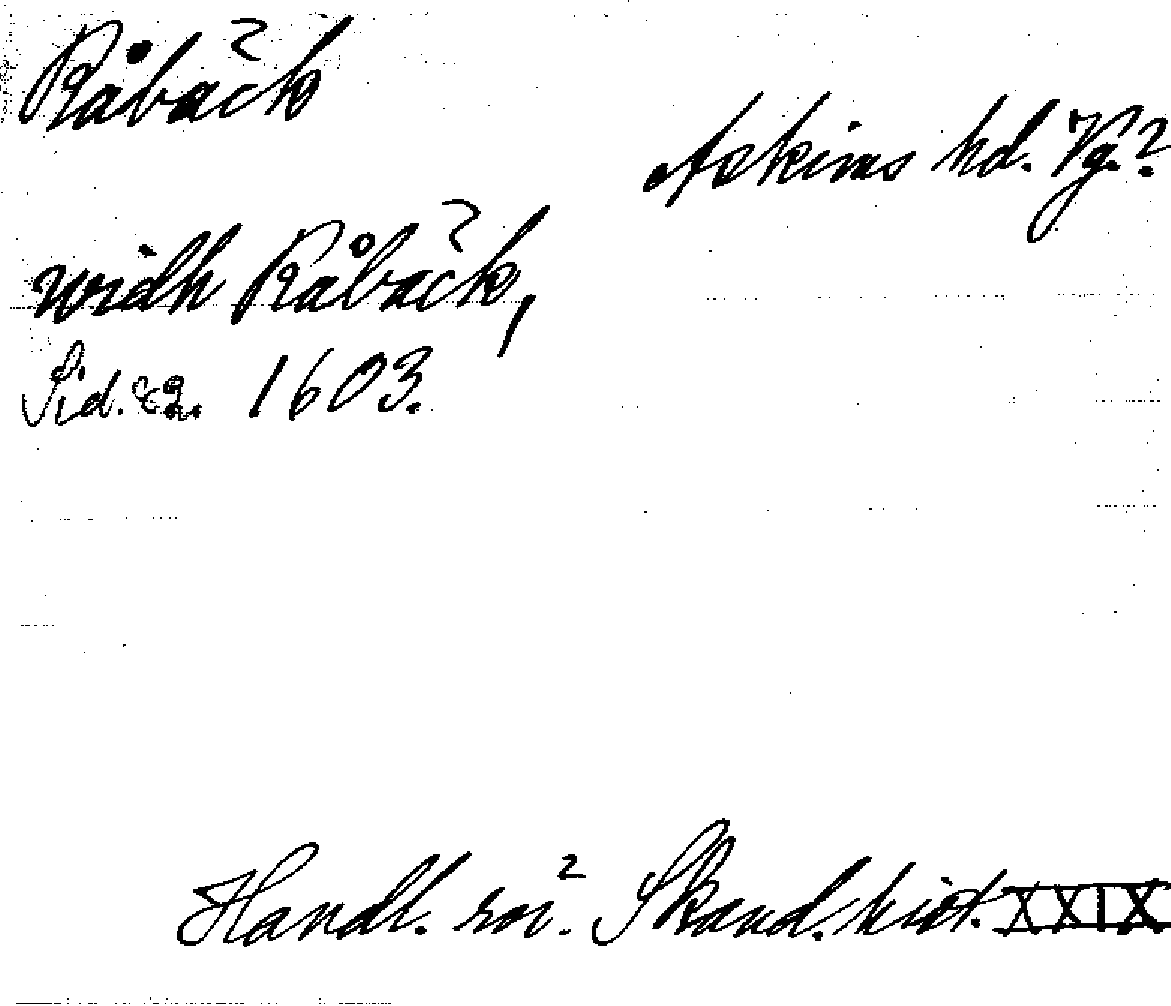 Råbäck
Askims hd. Vg.?
widh Råbäck,
Sid. 82. 1603.
Handl. rör. Skand. hist. XXIX